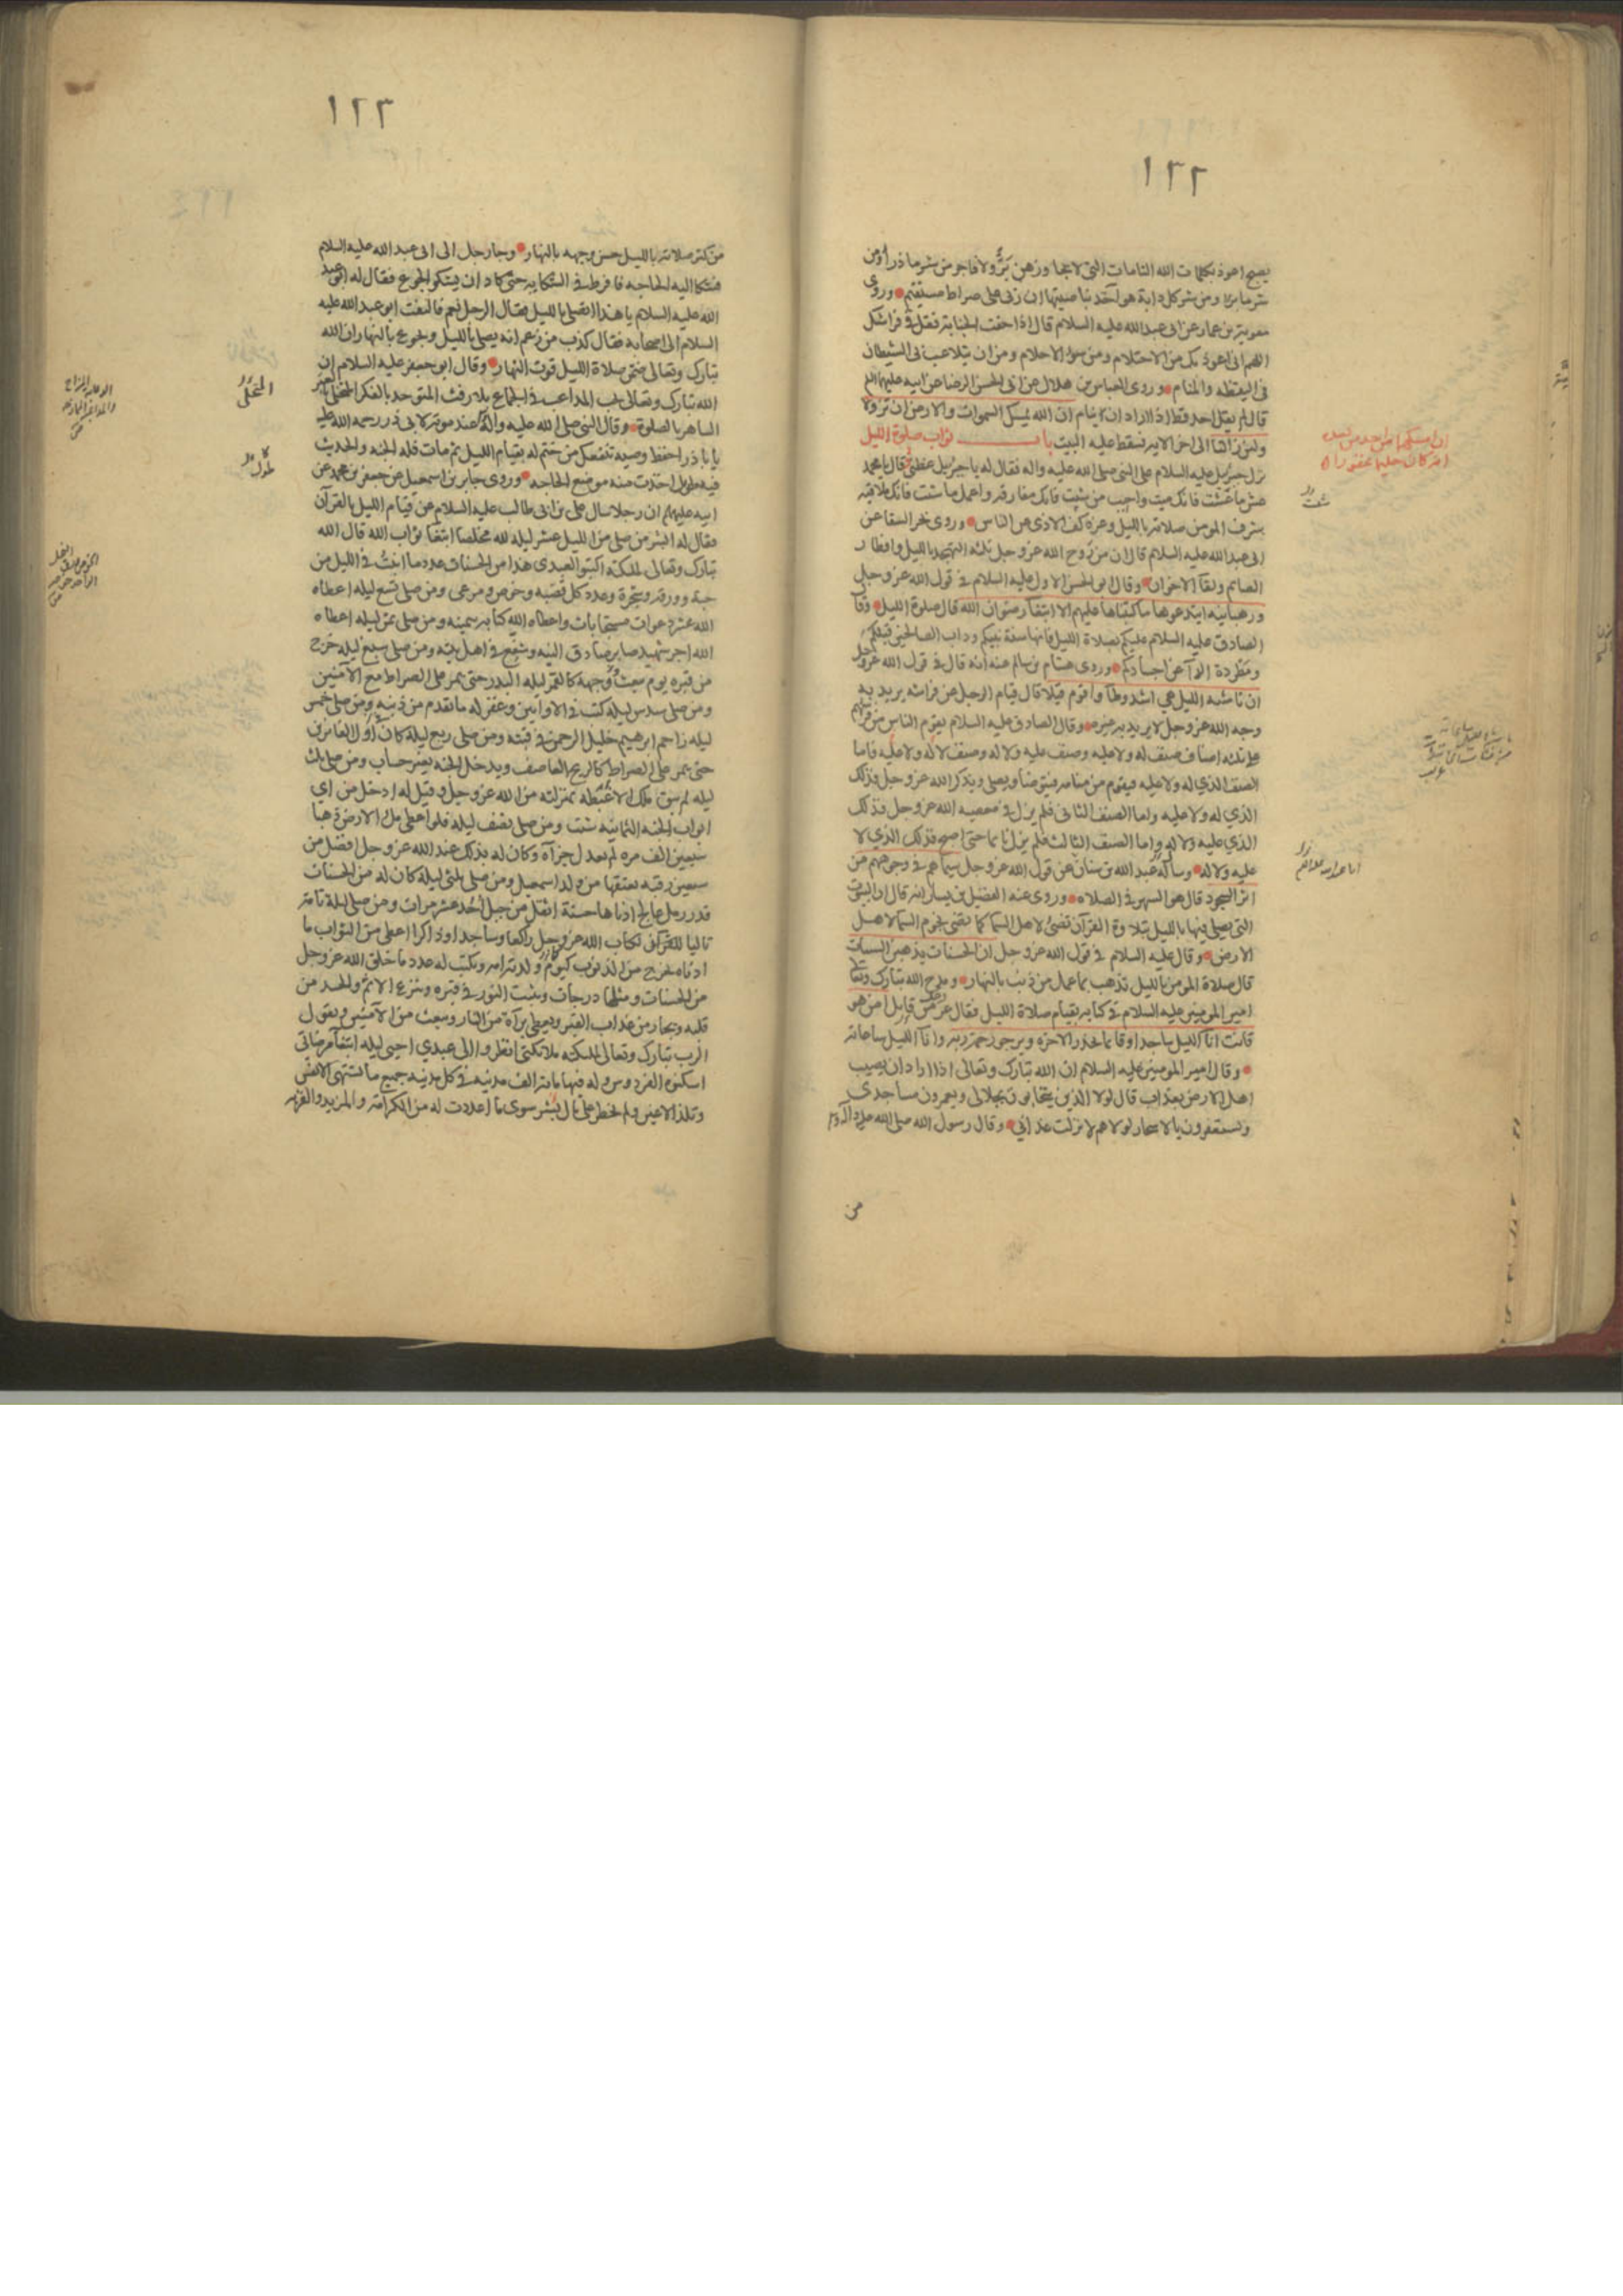 ١٢٢
يصبح اعوذ بكلمات الله التامات التي لا يجاوزهن بَرٌّ ولا فاجر من شر ما ذرأ ومن
شر ما برأ ومن شر كل دابة هو آخذ بناصيتها ان ربي على صراط مستقيم وروى
معوية بن عمار عن ابى عبد الله عليه السلام قال اذا خفت الجنابة فقل في فراشك
اللهم انى اعوذ بك من الاحتلام ومن سوء الاحلام ومن ان يتلاعب بى الشيطان
فى اليقظه والمنام وروى العباس بن هلال عن ابى الحسن الرضا عن ابيه عليهما السلم
قال لم يقل احد قط اذا اراد ان ينام ان الله يمسك السموات والارض ان تزولا
ولئن زالتا الى اخر الايه فسقط عليه البيت باب ثواب صلوة الليل
نزل جبرئيل عليه السلام على النبى صلى الله عليه واله فقال له يا جبرئيل عظنى قال يا محمد
عش ما شئت فانك ميت واحبب من شئت فانك مفارقه واعمل ما شئت فانك ملاقيه
شرف المومن صلاته بالليل وعزه كف الاذى عن الناس وروى بحر السقا عن
ابى عبد الله عليه السلام قال ان من رَوح الله عز وجل ثلثه التهجد بالليل وافطار
الصائم ولقآ الاخوان وقال ابو الحسن الاول عليه السلام فى قول الله عز وجل
ورهبانيه ابتدعوها ما كتبناها عليهم الا ابتغآ رضوان الله قال صلوة الليل وقا
الصادق عليه السلام عليكم بصلاة الليل فانها سنة نبيكم وداب الصالحين قبلكم
ومطردة الدآ عن اجسادكم وروى هشام بن سالم عنه انه قال فى قول الله عز وجل
ان ناشئه الليل هي اشد وطأ واقوم قيلا قال قيام الرجل عن فراشه يريد به
وجه الله عز وجل لا يريد به غيره وقال الصادق عليه السلام يقوم الناس من فرشهم
على ثلثه اصناف صنف له ولا عليه وصنف عليه ولا له وصنف لا له ولا عليه فاما
الصنف الذي له ولا عليه فيقوم من منامه فيتوضأ ويصلى ويذكر الله عز وجل فذلك
الذي له ولا عليه واما الصنف الثانى فلم يزل فى معصيه الله عز وجل فذلك
الذي عليه ولا له واما الصنف الثالث فلم يزل نايما حتى اصبح فذلك الذي لا
عليه ولا له وسأله عبد الله بن سنان عن قول الله عز وجل سيماهم فى وجوههم من
اثر السجود قال هو السهر فى الصلاه وروى عنه الفضيل بن يسار انه قال ان البيوت
التى يصلى فيها بالليل بتلاوة القرآن تضئ لاهل السما كما تضى نجوم السما لاهل
الارض وقال عليه السلام فى قول الله عز وجل ان الحسنات يذهبن السيئات
قال صلاة المومن بالليل تذهب بما عمل من ذنب بالنهار ومدح الله تبارك وتعالى
امير المومنين عليه السلام فى كتابه بقيام صلاة الليل فقال عز من قايل امن هو
قانت انآ الليل ساجدا وقائما يحذر الاخرة ويرجو رحمة ربه وانآ الليل ساعاته
وقال امير المومنين عليه السلام ان الله تبارك وتعالى اذا اراد ان يصيب
اهل الارض بعذاب قال لولا الذين يتحابون بجلالى ويعمرون مساجدى
ويستغفرون بالاسحار لولاهم لانزلت عذابي وقال رسول الله صلى الله عليه وآله
من
ان امسكهما من احد من بعده
انه كان حليما غفورا
شئت
١٢٣
من كثر صلاته بالليل حسن وجهه بالنهار وجا رجل الى ابى عبد الله عليه السلام
فشكا اليه الحاجه فافرط فى الشكايه حتى كاد ان يشكو الجوع فقال له ابو عبد
الله عليه السلام يا هذا اتصلى بالليل فقال الرجل نعم فالتفت ابو عبد الله عليه
السلام الى اصحابه فقال كذب من زعم انه يصلى بالليل ويجوع بالنهار ان الله
تبارك وتعالى ضمن صلاة الليل قوت النهار وقال ابو جعفر عليه السلام ان
الله تبارك وتعالى يحب المداعب فى الجماع بلا رفث المتوحد بالفكر المتخلى بالعبر
الساهر بالصلوة وقال النبى صلى الله عليه واله عند موته لابى ذر رحمه الله عليه
يا با ذر احفظ وصيه نبيك تنفعك من ختم له بقيام الليل ثم مات فله الجنه والحديث
فيه طويل اخذت منه موضع الحاجه وروى جابر بن اسمعيل عن جعفر بن محمد عن
ابيه عليهم ان رجلا سال على بن ابى طالب عليه السلام عن قيام الليل بالقرآن
فقال له ابشر من صلى من الليل عشر ليله لله مخلصا ابتغا ثواب الله قال الله
تبارك وتعالى لملئكته اكتبوا لعبدى هذا من الحسنات عدد ما انبت فى الليل من
حبة وورقه وشجرة وعدد كل قصبه وخوص ومرعى ومن صلى تسع ليله اعطاه
الله عشر دعوات مستجابات واعطاه الله كتابه بيمينه ومن صلى ثمن ليله اعطاه
الله اجر شهيد صابر صادق النيه وشفع فى اهل بيته ومن صلى سبع ليله خرج
من قبره يوم يبعث ووجهه كالقمر ليله البدر حتى يمر على الصراط مع الآمنين
ومن صلى سدس ليله كتب فى الاوابين وغفر له ما تقدم من ذنبه ومن صلى خمس
ليله زاحم ابرهيم خليل الرحمن فى قبته ومن صلى ربع ليلة كان فى اول الفائزين
حتى يمر على الصراط كالريح العاصف ويدخل الجنه بغير حساب ومن صلى ثلث
ليله لم يبق ملك الا غبطه بمنزلته من الله عز وجل وقيل له ادخل من اي
ابواب الجنه الثمانيه شئت ومن صلى نصف ليله فلو اعطى ملء الارض ذهبا
سبعين الف مره لم يعدل جزآه وكان له بذلك عند الله عز وجل افضل من
سبعين رقبه يعتقها من ولد اسمعيل ومن صلى ثلثى ليلة كان له من الحسنات
قدر رمل عالج ادناها حسنة اثقل من جبل احد عشر مرات ومن صلى ليلة تامة
تاليا لكتاب الله عز وجل راكعا وساجدا وذاكرا اعطى من الثواب ما
ادناه يخرج من الذنوب كيوم ولدته امه ويكتب له عدد ما خلق الله عز وجل
من الحسنات ومثلها درجات ويثبت النور فى قبره وينزع الاثم والحسد من
قلبه ويجار من عذاب القبر ويعطى برآة من النار ويبعث من الآمنين ويقول
الرب تبارك وتعالى لملئكته ملائكتى انظروا الى عبدي احيى ليله ابتغآ مرضاتى
اسكنوه الفردوس وله فيها مائة الف مدينه فى كل مدينه جميع ما تشتهى الانفس
وتلذ الاعين ولم يخطر على بال بشر سوى ما اعددت له من الكرامة والمزيد والقربه
المتخلى